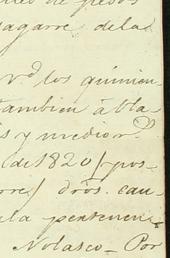 de pesos
pagarè dela
V.d los quinien
tambien à bla
s y medio r.s
(de 1820/ pos-
rre/ dros. cau-
ela pertenen-
Nolasco- Por